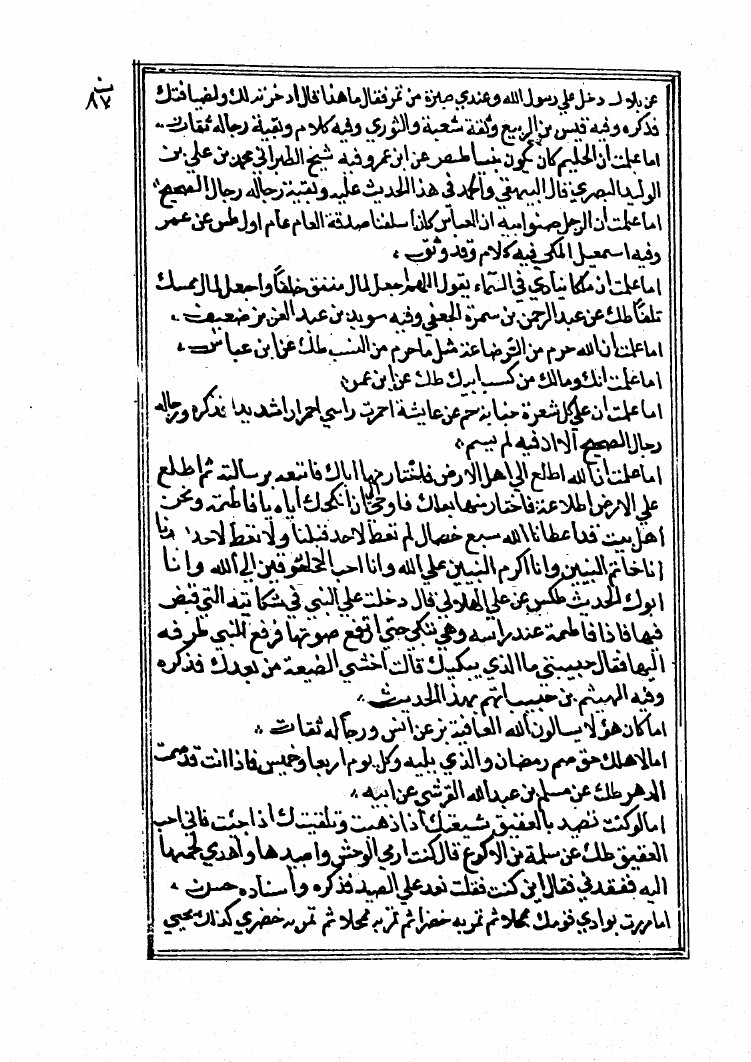 ٨٧
عن بلال دخل علي رسول الله وعندي صبرة من تمر فقال ما هذا قال ادخرته لك ولضيافتك
فذكره وفيه قيس بن الربيع وثقة شعبة والثوري وفيه كلام وبقية رجاله ثقات
اما علمت ان الحليم كاد يكون نبيا عن ابن عمر وفيه شيخ الطبراني محمد بن علي بن
الوليد البصري قال البيهقي والحمد في هذا الحديث عليه وبقية رجاله رجال الصحيح
اما علمت ان الرجل صنو ابيه ان العباس كان اسلفنا صدقة العام عام اول طس عن عمر
وفيه اسمعيل المكي فيه كلام وقد وثق
اما علمت ان ملكا ينادي في السماء يقول اللهم اجعل لمال منفق خلفا واجعل لمال ممسك
تلفا طك عن عبد الرحمن بن سمرة الجعفي وفيه سويد بن عبد العزيز ضعيف
اما علمت ان الله حرم من الرضاعة مثل ما حرم من النسب طك عن ابن عباس
اما علمت انك ومالك من كسب ابيك طك عن ابن عمر
اما علمت ان علي كل شعرة جنابة حم عن عايشة اجمرت راسي اجمارا شديدا فذكره ورجاله
رجال الصحيح الا ان فيه لم يسم
اما علمت ان الله اطلع الي اهل الارض فاختار منها اباك فابتعثه برسالته ثم اطلع
علي الارض اطلاعة فاختار منها بعلك فاوحي الي ان انكحك اياه يا فاطمة ونحن
اهل بيت قد اعطانا الله سبع خصال لم تعط لاحد قبلنا ولا تعط لاحد بعدنا
انا خاتم النبيين وانا اكرم النبيين علي الله وانا احب المخلوقين الي الله وانا
ابوك الحديث طكس عن علي الهلالي قال دخلت علي النبي في شكاته التي قبض
فيها فاذا فاطمة عند راسه وهي تبكي حتي ارتفع صوتها فرفع النبي طرفه
اليها فقال حبيبتي ما الذي يبكيك قالت اخشي الضيعة من بعدك فذكره
وفيه الهيثم بن حبيب اتهم بهذا الحديث
اما كان هؤلا يسالون الله العافية بز عن انس ورجاله ثقات
اما لاهلك حق صم رمضان والذي يليه وكل يوم اربعا وخميس فاذا انت قد صمت
الدهر طك عن مسلم بن عبد الله القرشي عن ابيه
اما لو كنت تصيد بالعقيق لشيعتك اذا ذهبت وتلقيتك اذا جئت فاني احب
العقيق طك عن سلمة بن الاكوع قال كنت ارمي الوحش واصيدها واهدي لحمها
اليه ففقدني فقال اين كنت فقلت نعد علي الصيد فذكره واسناده حسن
اما مررت بوادي قومك محلا ثم تمر به خضرا ثم تمر به محلا ثم تمر به خضري كذلك يحيي